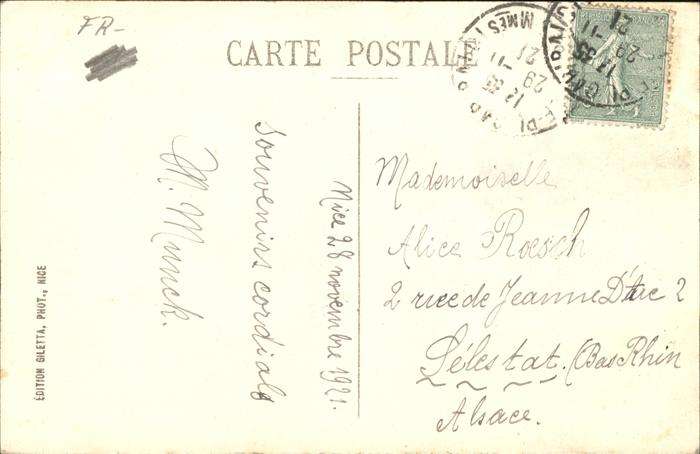 FR-
CARTE POSTALE
Nice 28 novembre 1921.
Souvenirs cordials
M. Munck.
Mademoiselle
Alice Roesch
2 rue de Jeanne D'Arc 2
Sélestat. (Bas Rhin
Alsace.
ÉDITION GILETTA, PHOT., NICE